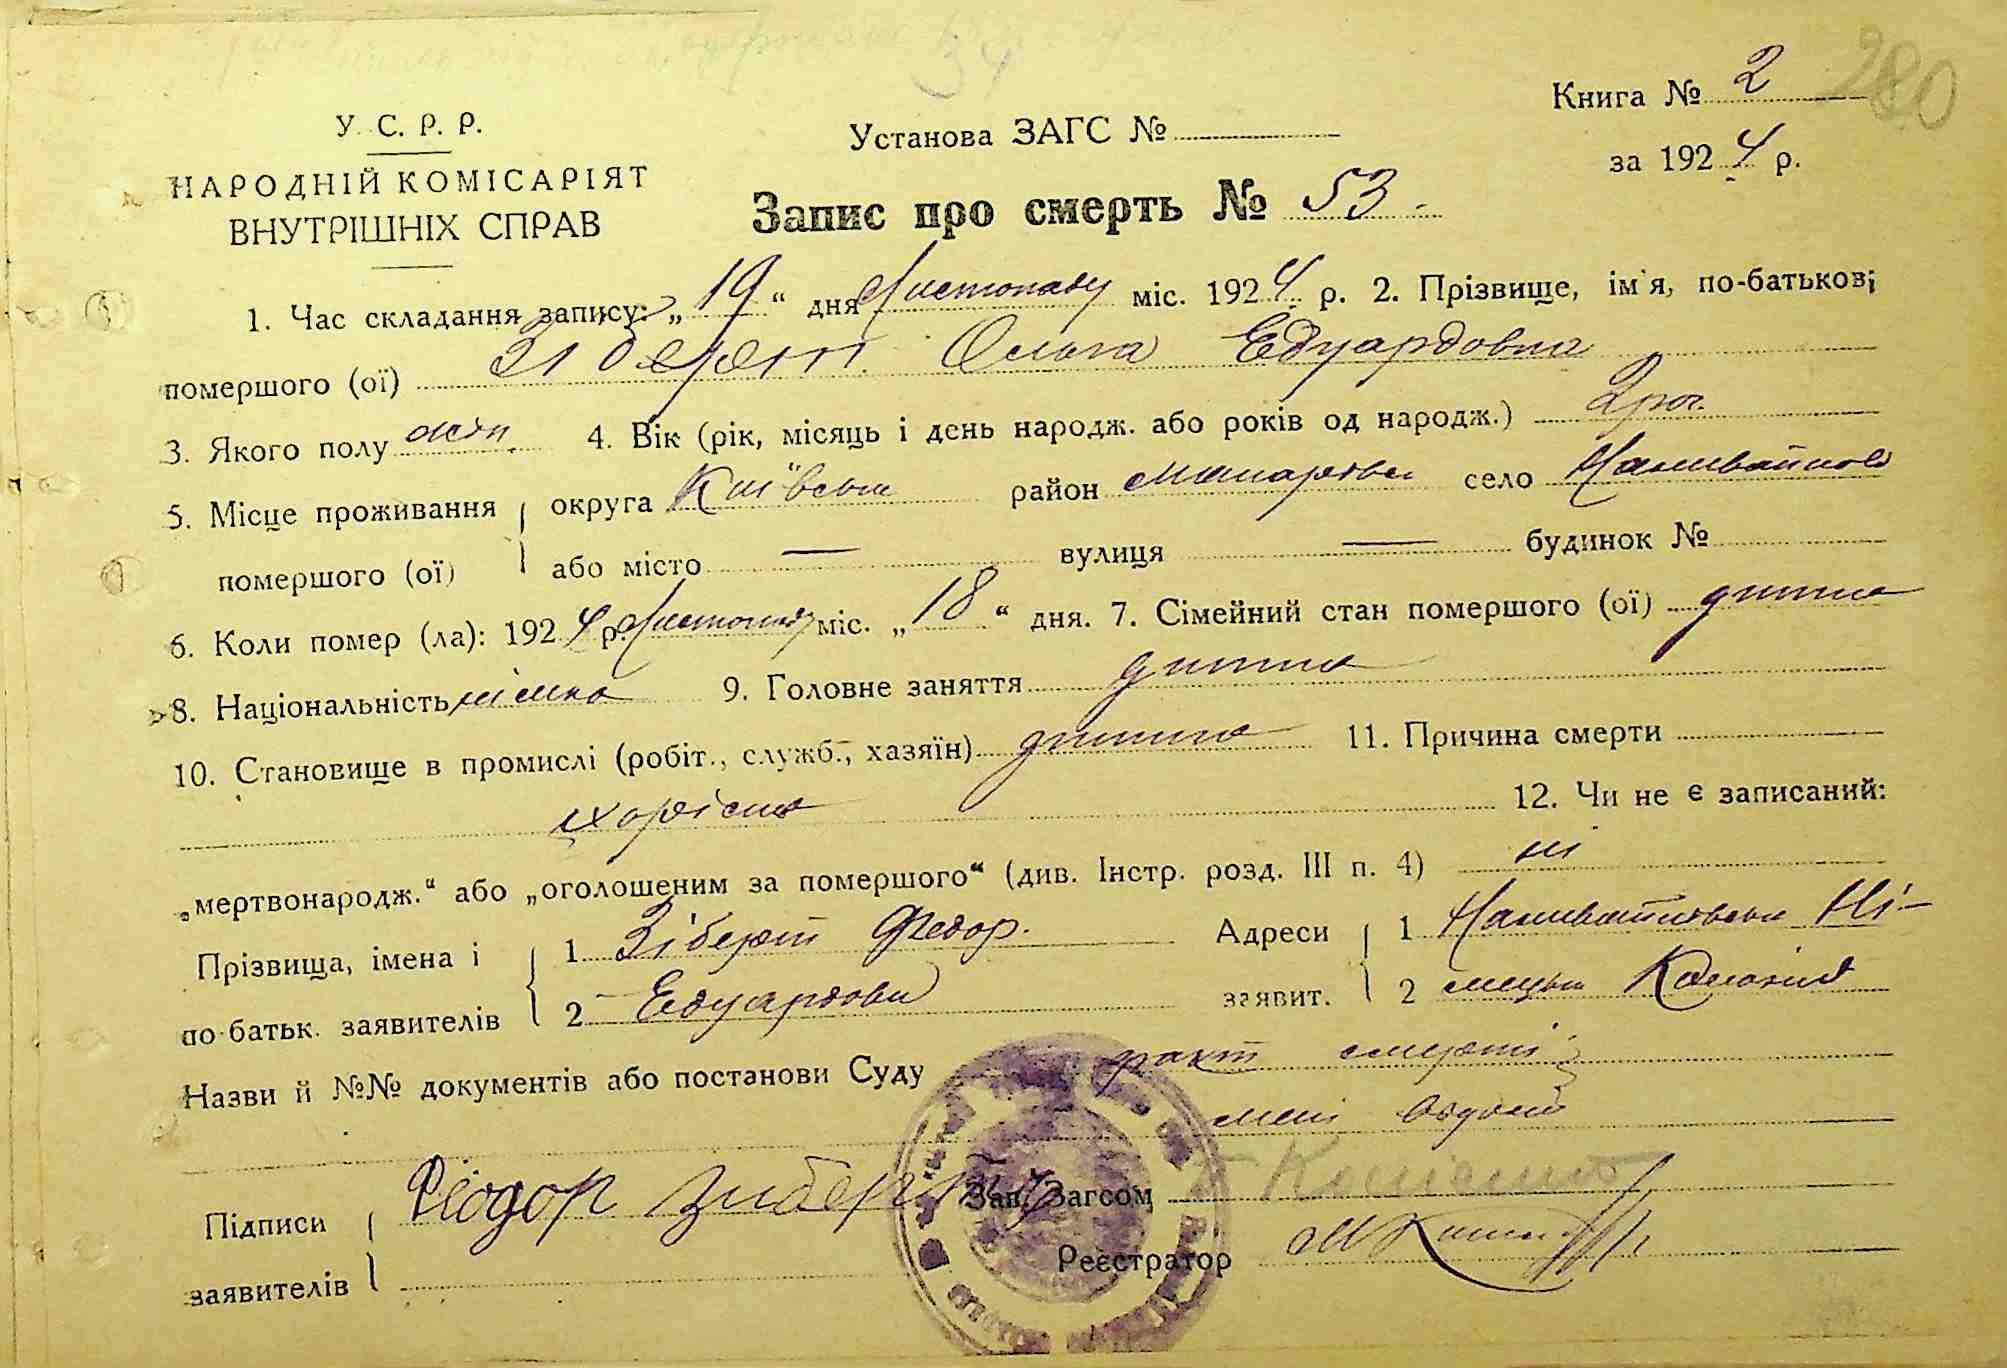 280
34
Книга № 2
У. С. Р. Р.
Установа ЗАГС №
за 1924 р.
НАРОДНІЙ КОМІСАРІЯТ
ВНУТРІШНІХ СПРАВ
Запис про смерть № 53.
1. Час складання запису: „19“ дня Листопаду міс. 1924 р. 2. Прізвище, ім'я, по-батькові
помершого (ої) Зіберт Ольга Едуардовна
3. Якого полу жін. 4. Вік (рік, місяць і день народж. або років од народж.) 2 рок.
5. Місце проживання округа Київська район Макарівськ село Наливайково
помершого (ої) або місто — вулиця — будинок №
6. Коли помер (ла): 1924 р. Листопаду міс. „18“ дня. 7. Сімейний стан помершого (ої) дитина
8. Національність німка 9. Головне заняття дитина
10. Становище в промислі (робіт., служб., хазяїн) дитина 11. Причина смерти
12. Чи не є записаний:
„мертвонародж.“ або „оголошеним за помершого“ (див. Інстр. розд. III п. 4) ні
Прізвища, імена і 1 Зіберт Федор. Адреси 1 Наливайківськ Ні-
по-батьк. заявителів 2 Едуардови заявит. 2 мецька Колонія
Назви й №№ документів або постанови Суду факт смерті
мені
Підписи Феодор Зиберт Зав. Загсом
заявителів Реєстратор